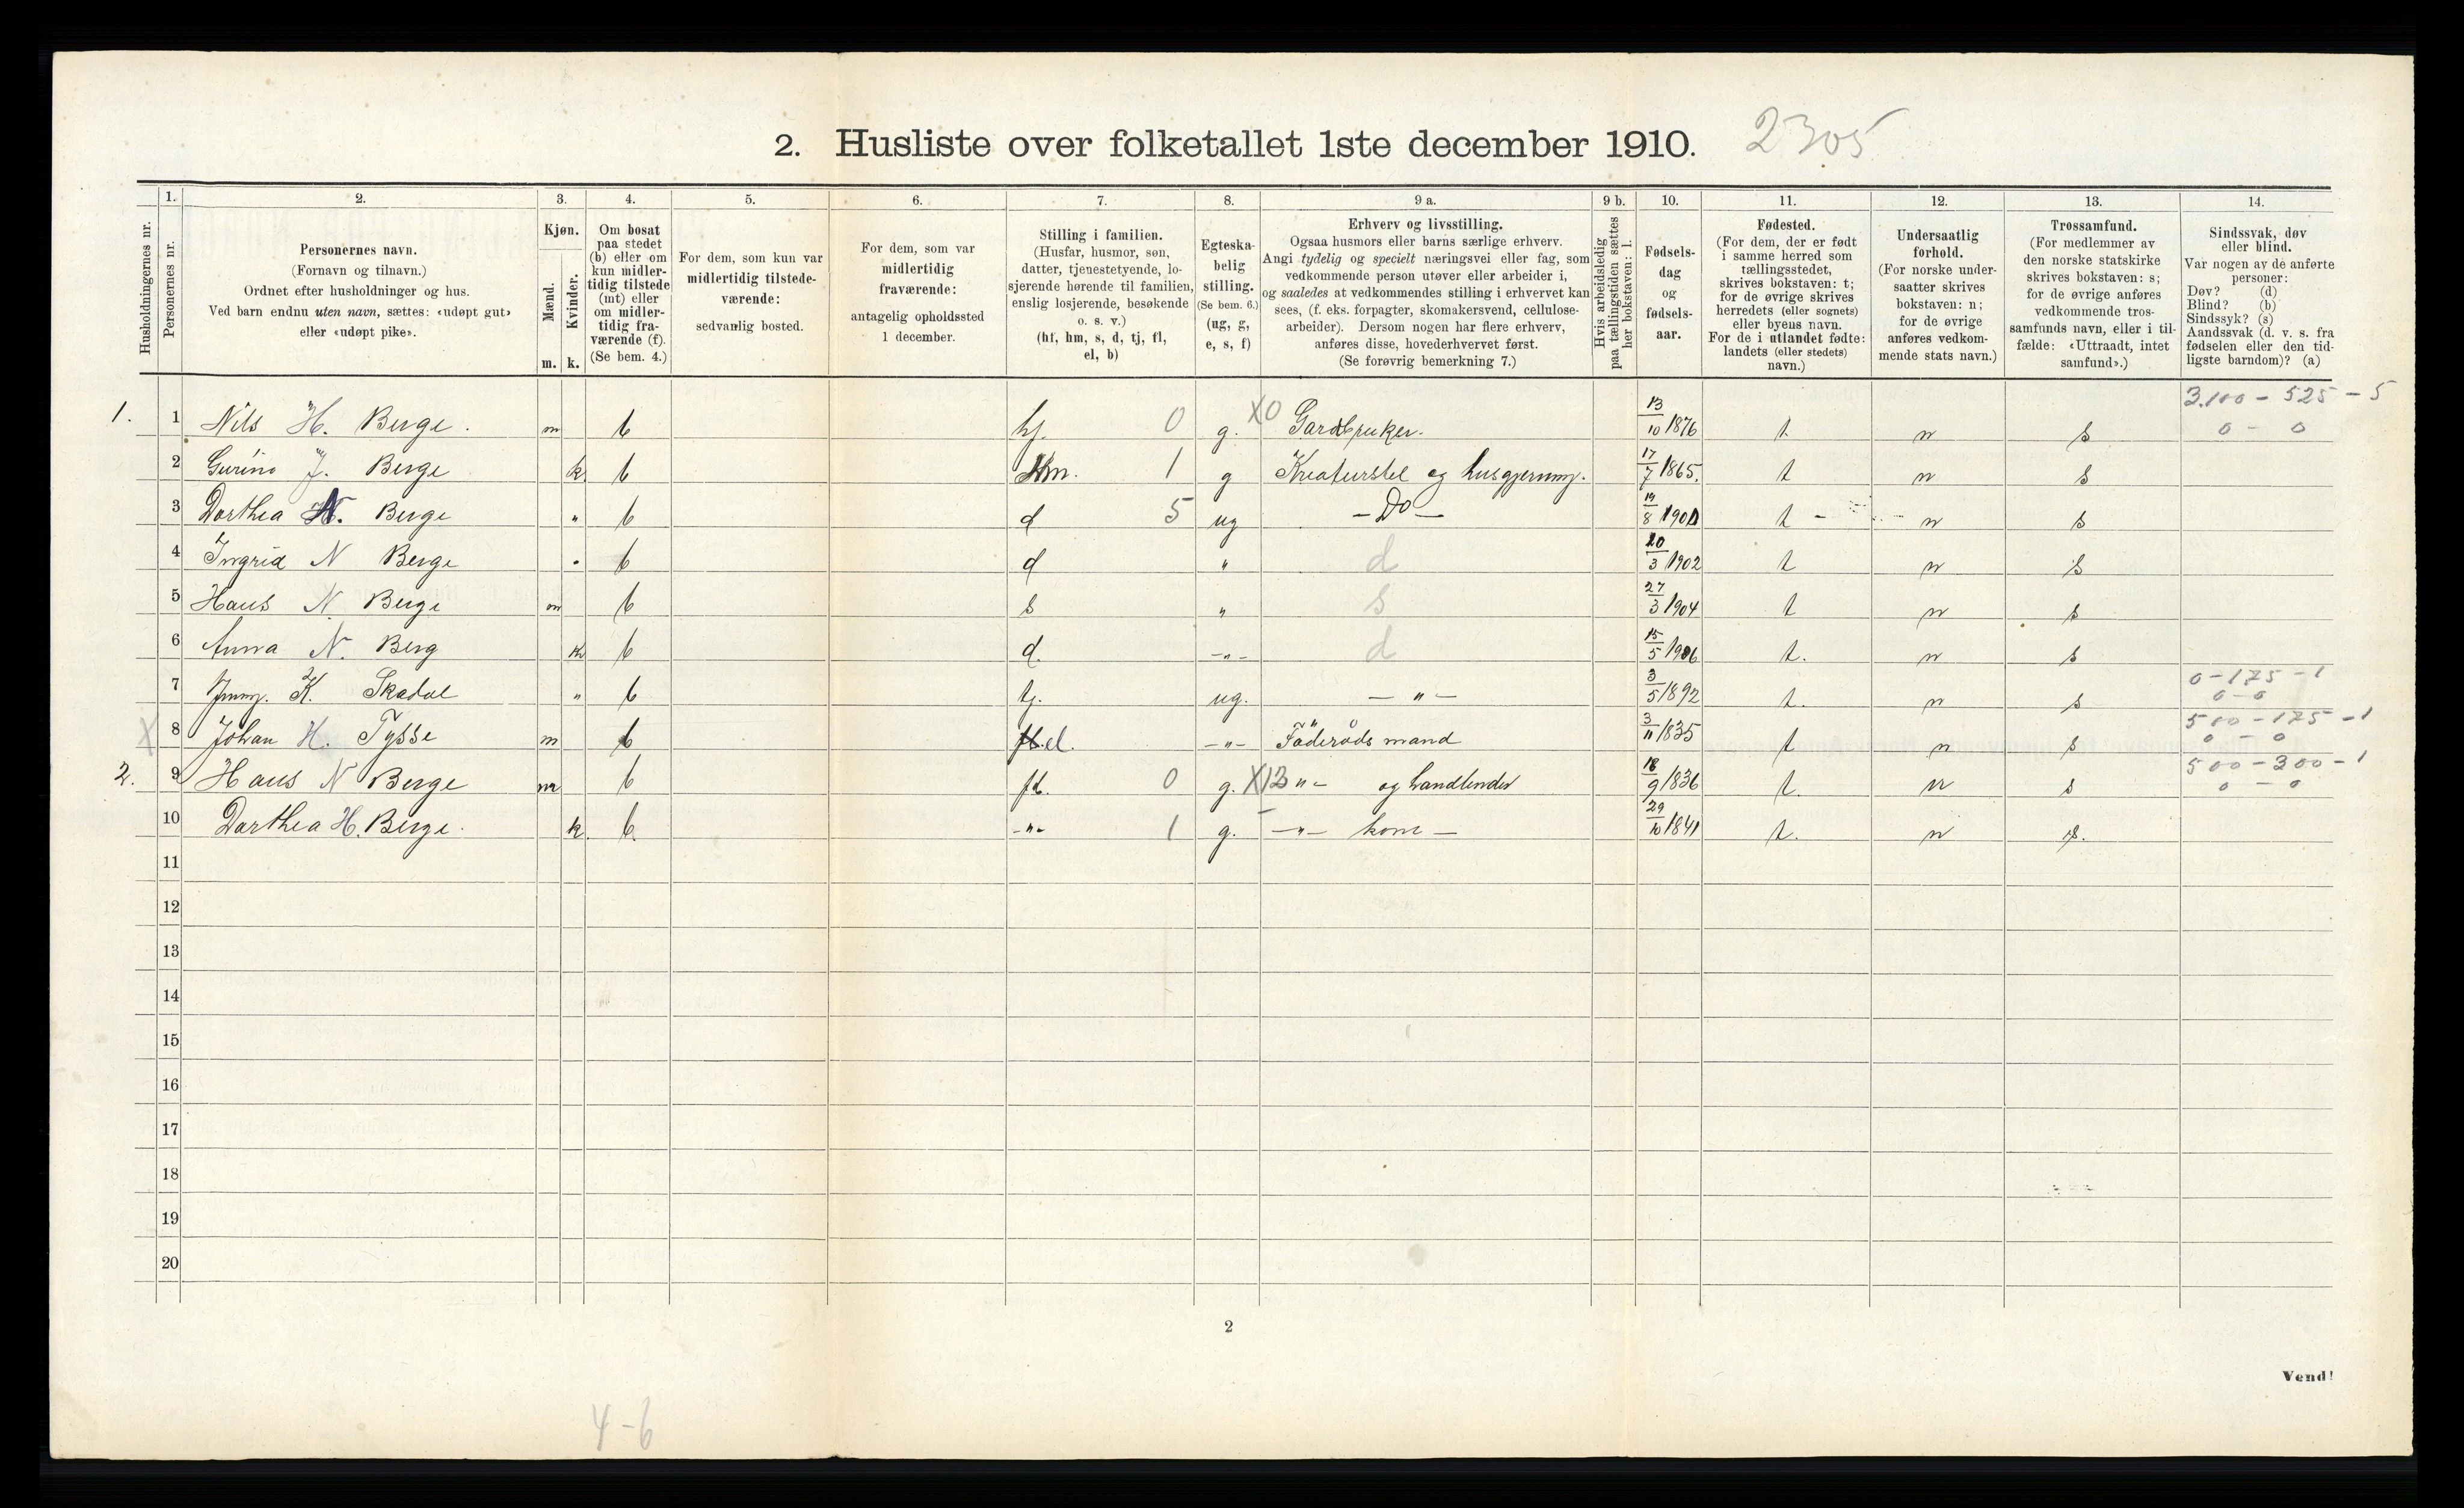 2. Husliste over folketallet 1ste december 1910. 2305
Husholdningernes nr.
1. Personernes nr.
2. Personernes navn.
(Fornavn og tilnavn.)
Ordnet efter husholdninger og hus.
Ved barn endnu uten navn, sættes: «udøpt gut»
eller «udøpt pike».
3. Kjøn.
Mænd. m.
Kvinder. k.
4. Om bosat
paa stedet
(b) eller om
kun midler-
tidig tilstede
(mt) eller
om midler-
tidig fra-
værende (f).
(Se bem. 4.)
5. For dem, som kun var
midlertidig tilstede-
værende:
sedvanlig bosted.
6. For dem, som var
midlertidig
fraværende:
antagelig opholdssted
1 december.
7. Stilling i familien.
(Husfar, husmor, søn,
datter, tjenestetyende, lo-
sjerende hørende til familien,
enslig losjerende, besøkende
o. s. v.)
(hf, hm, s, d, tj, fl,
el, b)
8. Egteska-
belig
stilling.
(Se bem. 6.)
(ug, g,
e, s, f)
9 a. Erhverv og livsstilling.
Ogsaa husmors eller barns særlige erhverv.
Angi tydelig og specielt næringsvei eller fag, som
vedkommende person utøver eller arbeider i,
og saaledes at vedkommendes stilling i erhvervet kan
sees, (f. eks. forpagter, skomakersvend, cellulose-
arbeider). Dersom nogen har flere erhverv,
anføres disse, hovederhvervet først.
(Se forøvrig bemerkning 7.)
9 b. Hvis arbeidsledig
paa tællingstiden sættes
her bokstaven: l.
10. Fødsels-
dag
og
fødsels-
aar.
11. Fødested.
(For dem, der er født
i samme herred som
tællingsstedet,
skrives bokstaven: t;
for de øvrige skrives
herredets (eller sognets)
eller byens navn.
For de i utlandet fødte:
landets (eller stedets)
navn.)
12. Undersaatlig
forhold.
(For norske under-
saatter skrives
bokstaven: n;
for de øvrige
anføres vedkom-
mende stats navn.)
13. Trossamfund.
(For medlemmer av
den norske statskirke
skrives bokstaven: s;
for de øvrige anføres
vedkommende tros-
samfunds navn, eller i til-
fælde: «Uttraadt, intet
samfund».)
14. Sindssvak, døv
eller blind.
Var nogen av de anførte
personer:
Døv? (d)
Blind? (b)
Sindssyk? (s)
Aandssvak (d. v. s. fra
fødselen eller den tid-
ligste barndom)? (a)
3.100 - 525 - 5
1. 1 Nils H. Berge. m b hf. 0 g. X0 Gardbruker. 13/10 1876 t. n s 0 - 0
2 Gurine J. Berge k. b Hm. 1 g Kreaturstel og husgjerning. 17/7 1865. t n s
3 Dorthea N. Berge " b d 5 ug - Do - 19/8 1900 t - n s
4 Ingrid N Berge " b d " d 20/3 1902 t n s
5 Hans N. Berge m b s " s 27/3 1904 t n s
6 Anna N. Berg k b d. -"- d 15/5 1906 t. n s
0 - 175 - 1
7 K. Skadal " b tj. ug. - " - 3/5 1892 t. n s 0 - 0
500 - 175 - 1
X 8 Johan H. Tysse m b el. -"- Föderåds mand 3/11 1835 t n s 0 - 0
500 - 300 - 1
2. 9 Hans N Berge m b fl. 0 g. X13 "- og Landhandler 18/9 1836 t. n s 0 - 0
10 Dorthea H. Berge. k. b. -"- 1 g. -"- kone - 29/10 1841 t. n s.
11
12
13
14
15
16
17
18
19
20
2
Vend!
4 - 6